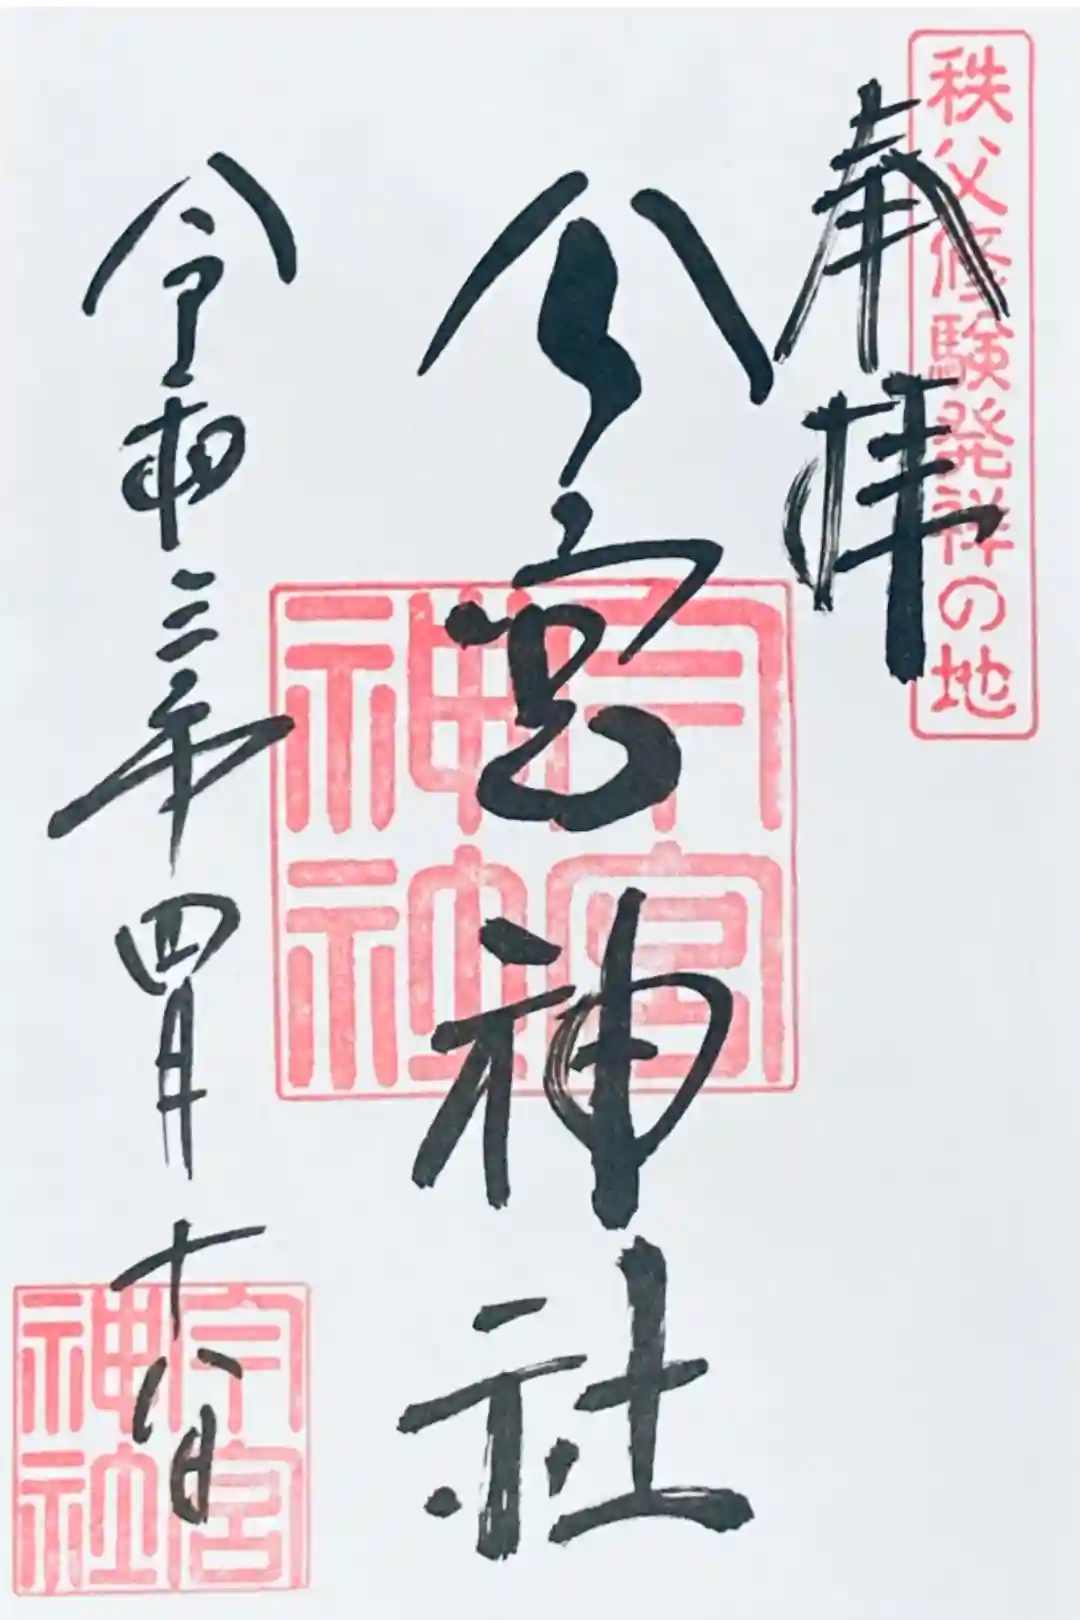 秩父修験発祥の地
奉拝
今宮神社
今宮神社
令和三年四月十八日
今宮神社